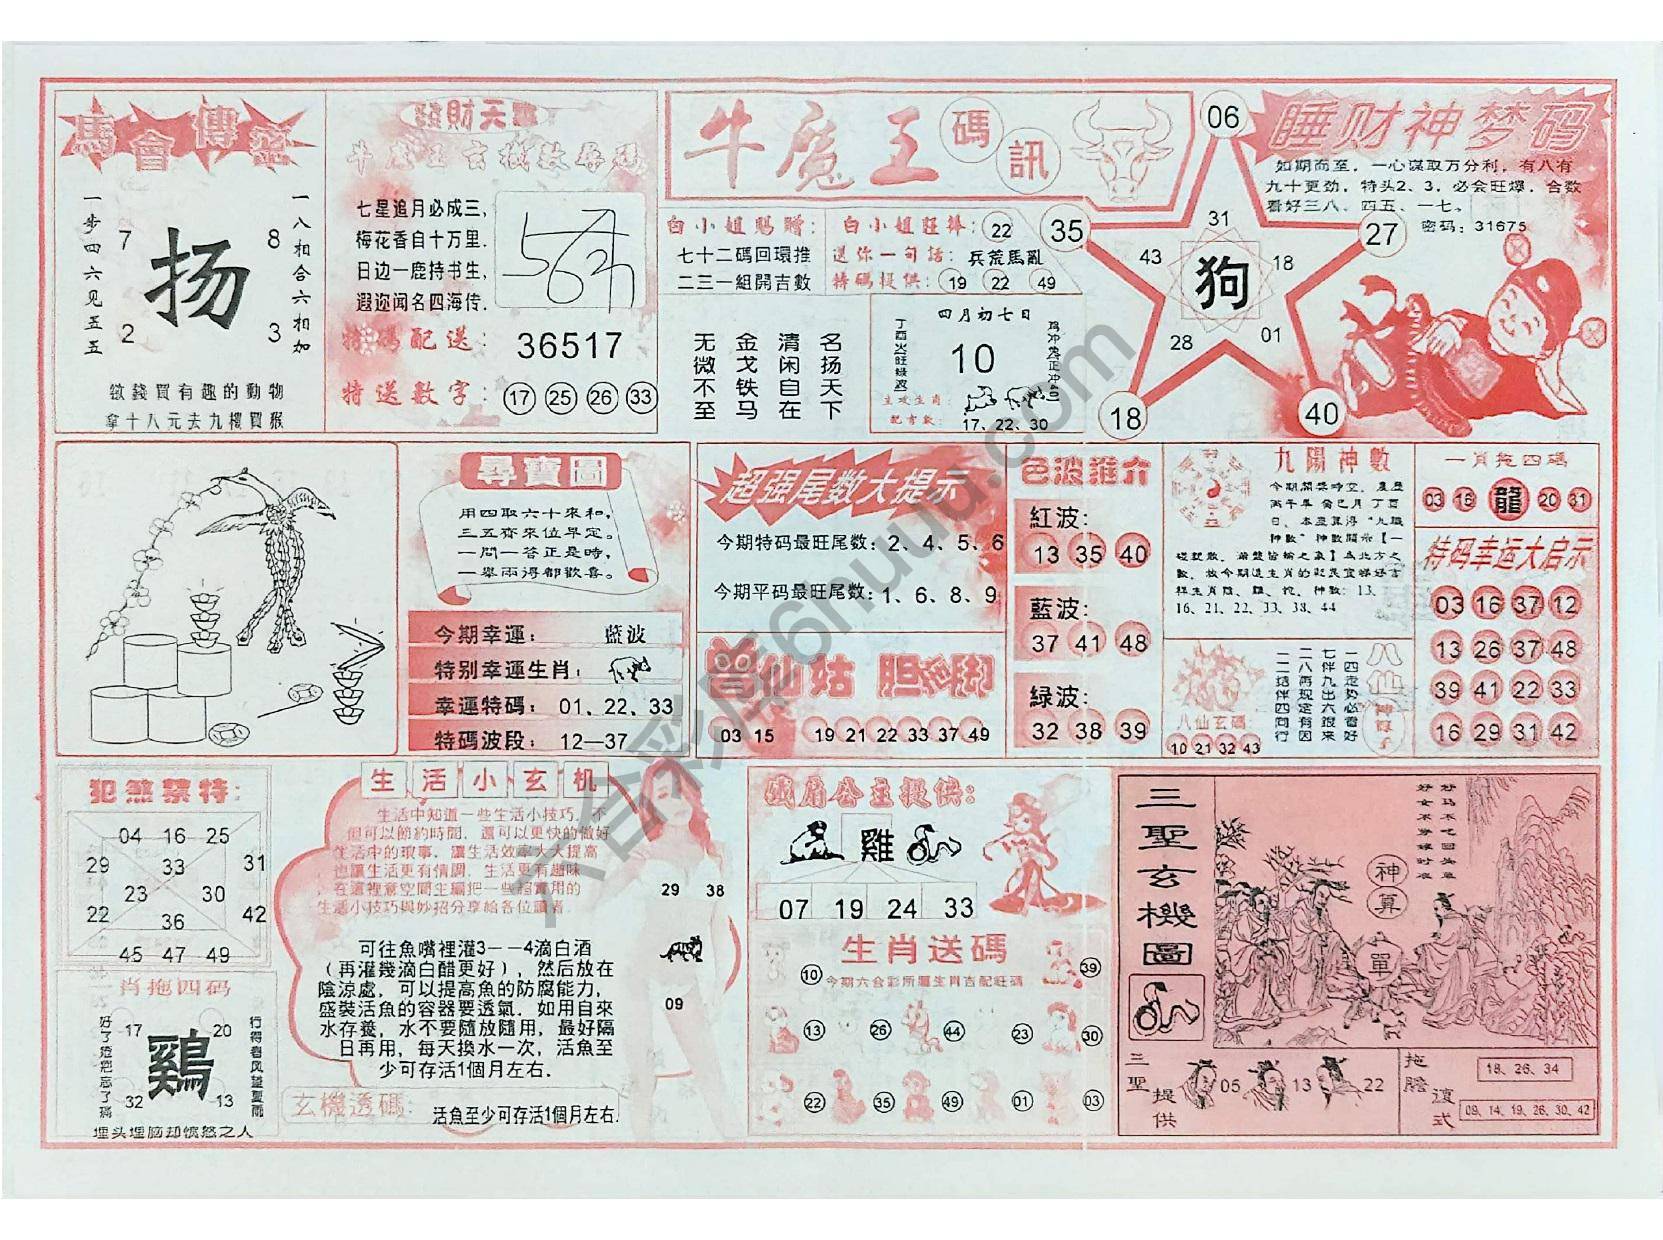 馬會傳密
一步四六见五五
7
8
扬
2
3
一八相合六相加
徵錢買有趣的動物
拿十八元去九樓買猴
發財天書
牛魔王玄機數尋碼
七星追月必成三,
梅花香自十万里.
日边一鹿持书生,
遐迩闻名四海传.
特碼配送:
36517
特送數字:
17 25 26 33
牛魔王
碼訊
白小姐賜贈:
七十二碼回環推
二三一組開吉數
白小姐旺棒: 22
送你一句話: 兵荒馬亂
特碼提供: 19 22 49
无微不至
金戈铁马
清闲自在
名扬天下
四月初七日
10
主攻生肖:
配吉數: 17、22、30
06
35
27
18
40
31
43
18
狗
28
01
睡财神梦码
如期而至,一心谋取万分利,有八有
九十更劲,特头2、3,必会旺爆,合数
看好三八、四五、一七。
密码:31675
尋寶圖
用四取六十來和,
三五齊來位早定。
一問一答正是時,
一舉兩得都歡喜。
今期幸運: 藍波
特别幸運生肖:
幸運特碼: 01、22、33
特碼波段: 12—37
超强尾数大提示
今期特码最旺尾数:2、4、5、6
今期平码最旺尾数:1、6、8、9
曾仙姑 胆拖脚
03 15 19 21 22 33 37 49
色波推介
紅波:
13 35 40
藍波:
37 41 48
緑波:
32 38 39
九陽神數
16、21、22、33、38、44
八仙玄碼
10 21 32 43
八仙
一肖拖四碼
03 16 龍 20 31
特码幸运大启示
03 16 37 12
13 26 37 48
39 41 22 33
16 29 31 42
犯煞禁特:
04 16 25
29 33 31
23 30
22 36 42
45 47 49
肖拖四码
好了疮疤忘了痛
17 20
鷄
32 13
行得春风望夏雨
埋头埋脑却愤怒之人
生活小玄机
生活中知道一些生活小技巧,不
但可以節約時間,還可以更快的做好
生活中的瑣事,讓生活效率大大提高
也讓生活更有情調,生活更有趣味
在這裡意空間主編把一些超實用的
生活小技巧與妙招分享給各位讀者
可往魚嘴裡灌3--4滴白酒
(再灌幾滴白醋更好),然后放在
陰涼處,可以提高魚的防腐能力,
盛裝活魚的容器要透氣.如用自來
水存養,水不要隨放隨用,最好隔
日再用,每天換水一次,活魚至
少可存活1個月左右.
29 38
09
玄機透碼: 活魚至少可存活1個月左右.
鐵扇公主提供:
雞
07 19 24 33
生肖送碼
今期六合彩所屬生肖吉配旺碼
10 39
13 26 44 23 30
22 35 49 01 03
三聖玄機圖
好马不吃回头草
好女不穿嫁时衣
神算
單
三聖提供
05 13 22
拖膽
18、26、34
複式
09、14、19、26、30、42
六合彩库6huuu.com